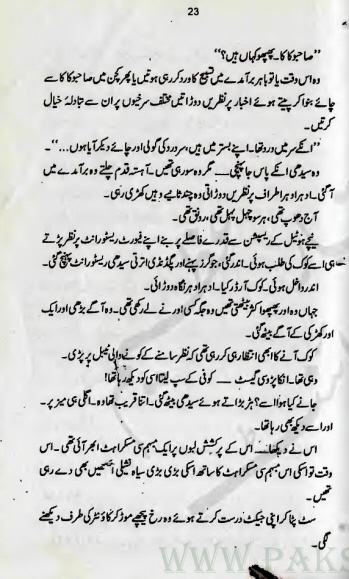 23
’’صاحبو کاکا۔ پھپھو کہاں ہیں؟‘‘
وہ اس وقت یا تو باہر برآمدے میں تسبیح کا ورد کر رہی ہوتیں یا پھر کچن میں صاحبو کاکا سے
چائے بنوا کر پیتے ہوئے اخبار پر نظریں دوڑاتیں مختلف سرخیوں پر ان سے تبادلہ خیال
کرتیں۔
’’انکے سر میں درد تھا۔ اپنے بستر میں ہیں، سر درد کی گولی اور چائے دیکر آیا ہوں۔۔۔‘‘۔
وہ سیدھی انکے پاس جا پہنچی۔ مگر وہ سو رہی تھیں۔ آہستہ قدم چلتے وہ برآمدے میں
آ گئی۔ ادھر اوہر اطراف پر نظریں دوڑاتی وہ چند ثانیے وہیں کھڑی رہی۔
آج دھوپ تھی، ہر سو چہل پہل تھی، رونق تھی۔
نیچے ہوٹیل کے ریسپشن سے قدرے فاصلے پر بنے اپنے فیورٹ ریسٹورانٹ پر نظر پڑتے
ہی اسے کوک کی طلب ہوئی۔ اندر گئی، جوگرز پہنے اور پگڈنڈی اترتی سیدھی ریسٹورانٹ پہنچ گئی۔
اندر داخل ہوئی۔ کوک آرڈر کیا۔ ادہر اوہر نگاہ دوڑائی۔
جہاں وہ اور پھپھو اکثر بیٹھتی تھیں وہ جگہ کسی اور نے لے رکھی تھی۔ وہ آگے بڑھی اور ایک
اور کھڑکی کے آگے بیٹھ گئی۔
کوک آنے کا ابھی انتظار ہی کر رہی تھی کہ نظر سامنے کے کونے والی ٹیبل پر پڑی۔
وہی تھا۔ انکا پڑوسی گیسٹ — کوفی کے سپ لیتا اسی کو دیکھ رہا تھا!
جانے کیا ہوا اسے؟ ہڑبڑاتے ہوئے سیدھی بیٹھ گئی۔ اتنا قریب تھا وہ۔ اگلی ہی میز پر۔
اور اسے دیکھ بھی رہا تھا۔
اس نے دیکھا۔۔۔ اس کے پرکشش لبوں پر ایک مبہم سی مسکراہٹ ابھر آئی تھی۔ اس
وقت تو اسکی اس مبہم سی مسکراہٹ کا ساتھ اسکی بڑی بڑی سیاہ نشیلی آنکھیں بھی دے رہی
تھیں۔
سٹ پٹا کر اپنی جیکٹ درست کرتے ہوئے وہ رخ پیچھے موڑ کر کاؤنٹر کی طرف دیکھنے
لگی۔
WWW.PAKS